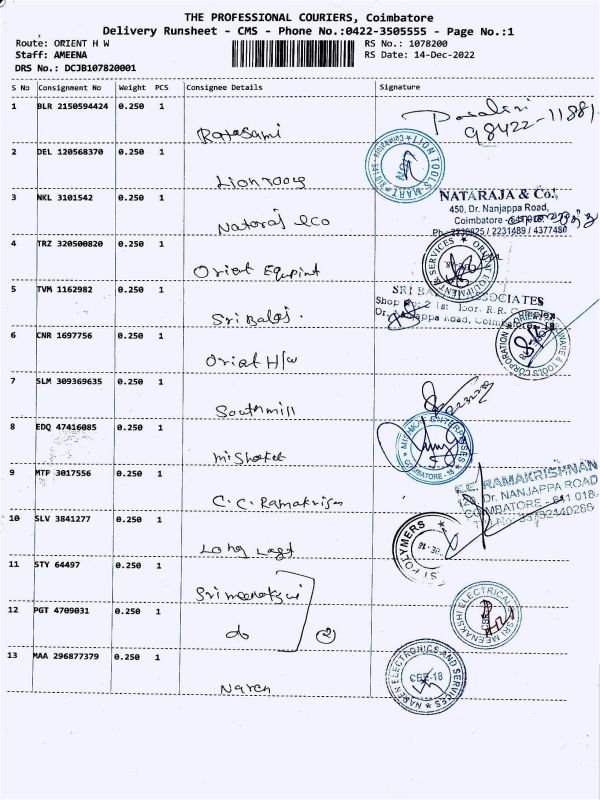 THE PROFESSIONAL COURIERS, Coimbatore
Delivery Runsheet - CMS - Phone No.:0422-3505555 - Page No.:1
Route: ORIENT H W
RS No.: 1078200
Staff: AMEENA
RS Date: 14-Dec-2022
DRS No.: DCJB107820001
S No Consignment No Weight PCS Consignee Details Signature
1 BLR 2150594424 0.250 1
98422-11881
Rajasami
2 DEL 120568370 0.250 1
LION TOOLS MART
Lion Tools
3 NKL 3101542 0.250 1
NATARAJA & Co.,
450, Dr. Nanjappa Road,
Coimbatore -
Ph : 2230825 / 2231489 / 4377480
Nataraj &co
4 TRZ 320500820 0.250 1
ORIENT EQUIPMENT & SERVICES
Orient Equpint
5 TVM 1162982 0.250 1
SRI BALAJI ASSOCIATES
Shop No. 2 1st Floor, R.R. Complex
Dr. Nanjappa Road, Coimbatore - 18
Sri Balaj.
6 CNR 1697756 0.250 1
ORIENT HARDWARE & TOOLS CORPORATION
Oriat H/w
7 SLM 309369635 0.250 1
Southmill
8 EDQ 47416085 0.250 1
ENTERPRISES
COIMBATORE - 18
9 MTP 3017556 0.250 1
RAMAKRISHNAN
Dr. NANJAPPA ROAD
COIMBATORE - 641 018
C.C. Ramakrisn
10 SLV 3841277 0.250 1
POLYMERS
CBE-18
Long Last
11 STY 64497 0.250 1
Sri meenakshi
12 PGT 4709031 0.250 1
SRI MEENAKSHI ELECTRICAL
do 2
13 MAA 296877379 0.250 1
NAREN ELECTRONICS AND SERVICES
CBE-18
Naren